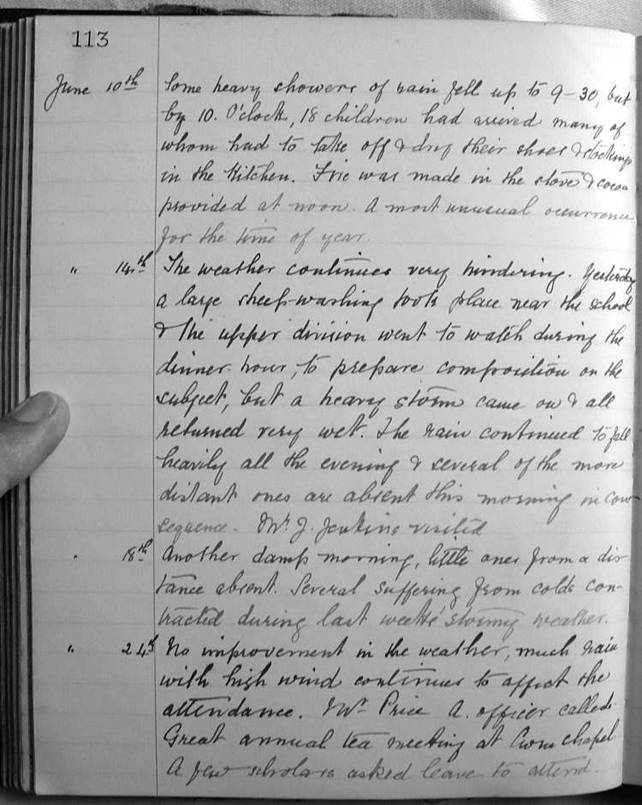 113
June 10th Some heavy showers of rain fell up to 9-30, but
by 10. O'clock, 18 children had arrived many of
whom had to take off & dry their shoes & stockings
in the kitchen. Fire was made in the stove & cocoa
provided at noon. A most unusual occurrence
for the time of year.
" 14th The weather continues very hindering. Yesterday
a large sheep-washing took place near the school
& the upper division went to watch during the
dinner hour, to prepare composition on the
subject, but a heavy storm came on & all
returned very wet. The rain continued to fall
heavily all the evening & several of the more
distant ones are absent this morning in con-
sequence. Mr. J. Jenkins visited
" 18th Another damp morning, little ones from a dis-
tance absent. Several suffering from colds con-
tracted during last week's stormy weather.
" 24th No improvement in the weather, much rain
with high wind continues to affect the
attendance. Mr. Price A. officer called.
Great annual tea meeting at Cwm chapel
A few scholars asked leave to attend.